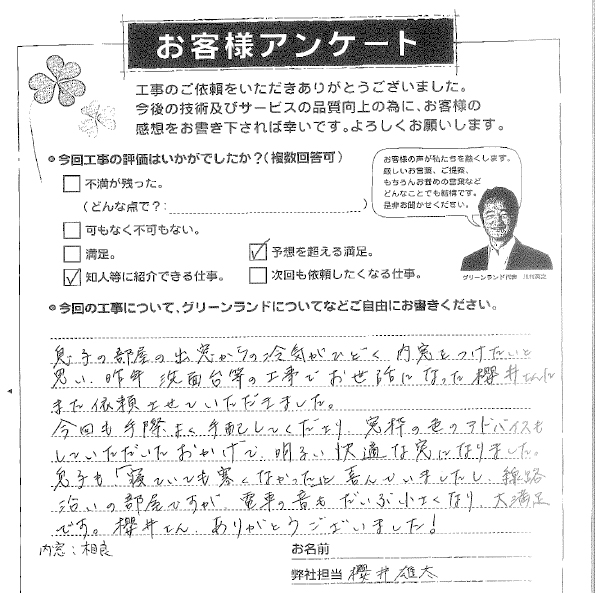 お客様アンケート
工事のご依頼をいただきありがとうございました。
今後の技術及びサービスの品質向上の為に、お客様の
感想をお書き下されば幸いです。よろしくお願いします。
●今回工事の評価はいかがでしたか?(複数回答可)
不満が残った。
(どんな点で?:
)
可もなく不可もない。
満足。
予想を超える満足。
知人等に紹介できる仕事。
次回も依頼したくなる仕事。
お客様の声が私たちを磨くします。
厳しいお言葉、ご提案、
もちろんお褒めの言葉など
どんなことでも結構です。
是非お聞かせください。
グリーンランド代表
●今回の工事について、グリーンランドについてなどご自由にお書きください。
息子の部屋の出窓からの冷気がひどく 内窓をつけたいと
思い、昨年 洗面台等の工事でお世話になった櫻井さんに
また依頼させていただきました。
今回も手際よく手配してくださり、窓枠の色のアドバイスも
していただいたおかげで、明るい快適な窓になりました。
息子も「寝ていても寒くなかった」と喜んでいましたし、線路
沿いの部屋ですが、電車の音もだいぶ小さくなり、大満足
です。櫻井さん、ありがとうございました!
内窓:相良
お名前
弊社担当 櫻井雄太